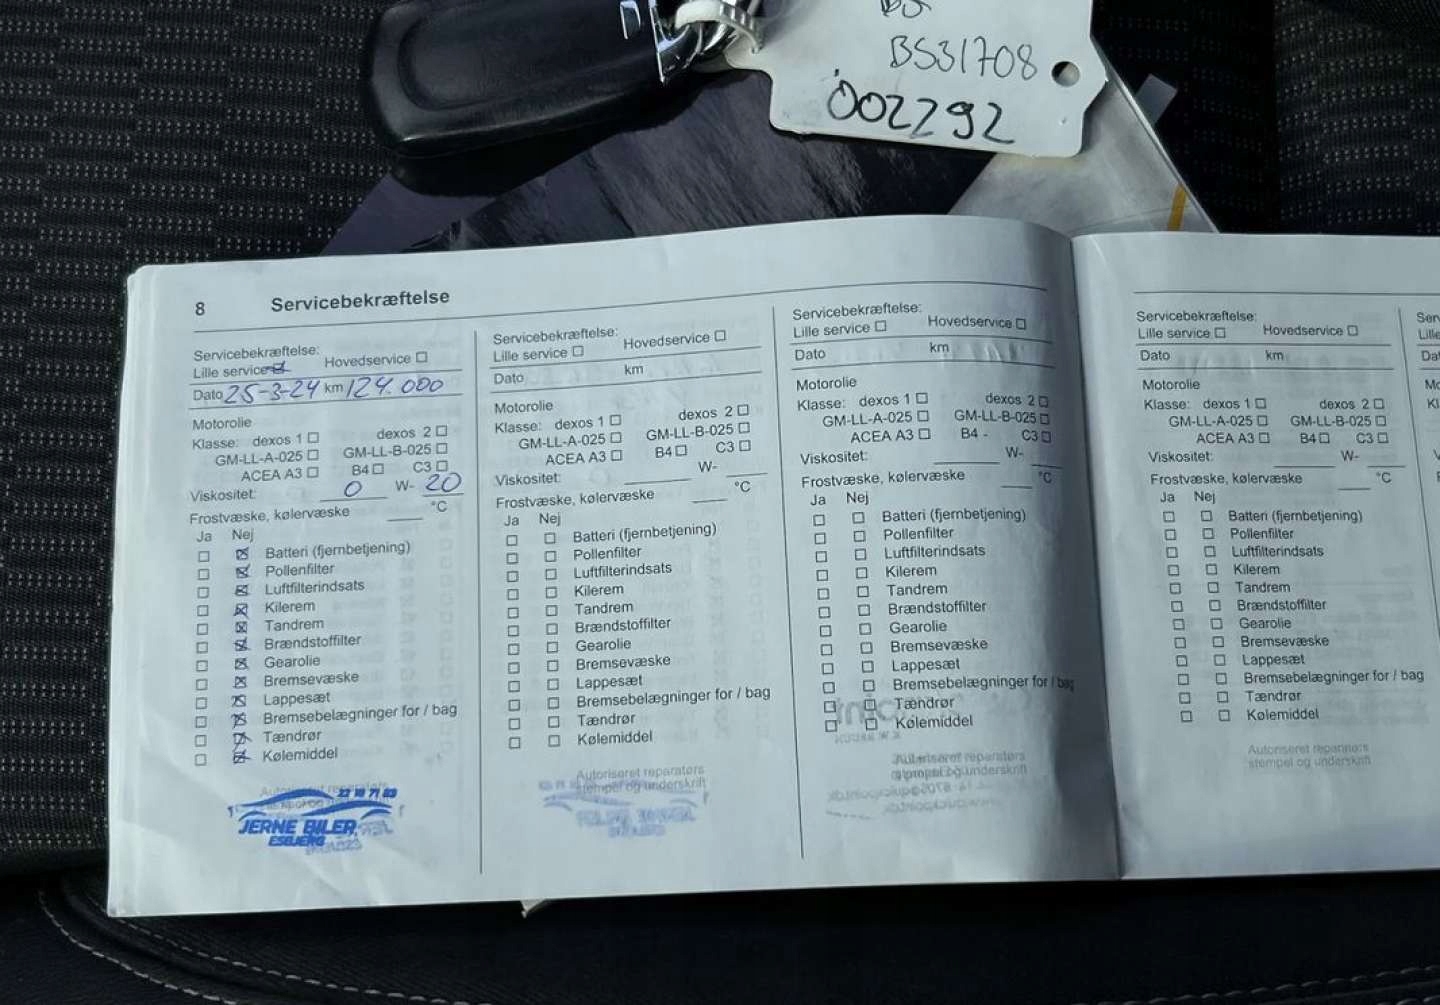 BS31708
002292
8 Servicebekræftelse
Servicebekræftelse:
Lille service Hovedservice
Dato 25-3-24 km 124.000
Motorolie
Klasse: dexos 1 dexos 2
GM-LL-A-025 GM-LL-B-025
ACEA A3 B4 C3
Viskositet: 0 W- 20
Frostvæske, kølervæske °C
Ja Nej
Batteri (fjernbetjening)
Pollenfilter
Luftfilterindsats
Kilerem
Tandrem
Brændstoffilter
Gearolie
Bremsevæske
Lappesæt
Bremsebelægninger for / bag
Tændrør
Kølemiddel
22 18 71 83
JERNE BILER
ESBJERG
Servicebekræftelse:
Lille service Hovedservice
Dato km
Motorolie
Klasse: dexos 1 dexos 2
GM-LL-A-025 GM-LL-B-025
ACEA A3 B4 C3
Viskositet: W-
Frostvæske, kølervæske °C
Ja Nej
Batteri (fjernbetjening)
Pollenfilter
Luftfilterindsats
Kilerem
Tandrem
Brændstoffilter
Gearolie
Bremsevæske
Lappesæt
Bremsebelægninger for / bag
Tændrør
Kølemiddel
Autoriseret reparatørs
stempel og underskrift
Servicebekræftelse:
Lille service Hovedservice
Dato km
Motorolie
Klasse: dexos 1 dexos 2
GM-LL-A-025 GM-LL-B-025
ACEA A3 B4 - C3
Viskositet: W-
Frostvæske, kølervæske °C
Ja Nej
Batteri (fjernbetjening)
Pollenfilter
Luftfilterindsats
Kilerem
Tandrem
Brændstoffilter
Gearolie
Bremsevæske
Lappesæt
Bremsebelægninger for / bag
Tændrør
Kølemiddel
Autoriseret reparatørs
stempel og underskrift
Servicebekræftelse:
Lille service Hovedservice
Dato km
Motorolie
Klasse: dexos 1 dexos 2
GM-LL-A-025 GM-LL-B-025
ACEA A3 B4 C3
Viskositet: W-
Frostvæske, kølervæske °C
Ja Nej
Batteri (fjernbetjening)
Pollenfilter
Luftfilterindsats
Kilerem
Tandrem
Brændstoffilter
Gearolie
Bremsevæske
Lappesæt
Bremsebelægninger for / bag
Tændrør
Kølemiddel
Autoriseret reparatørs
stempel og underskrift